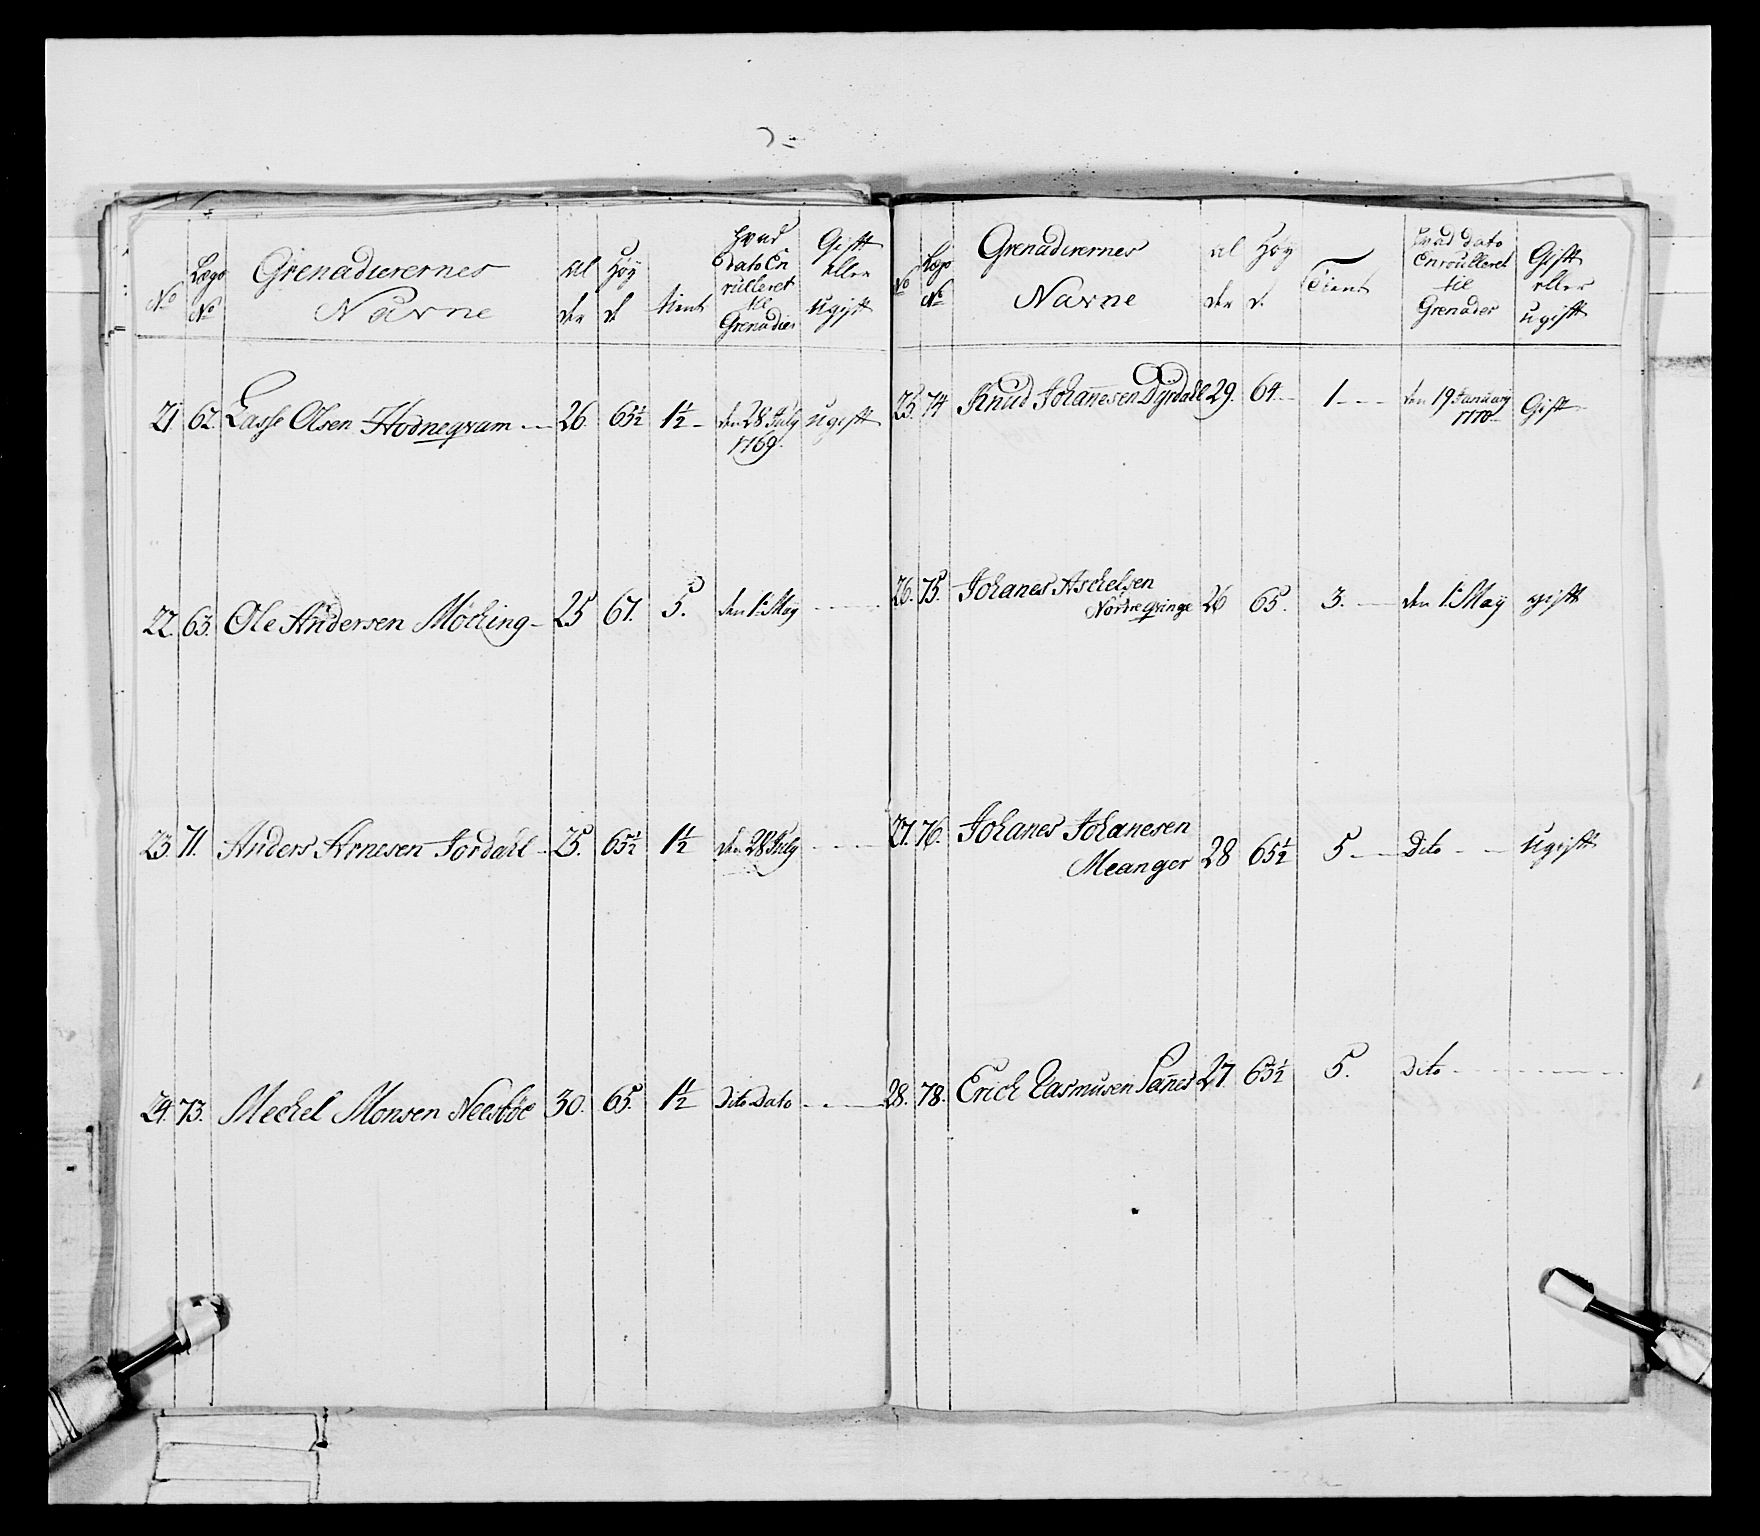 No
Lægs No
Grenadierernes Navne
Al der
Høy d
tient
Hvad dato En rulleret til Grenadier
Gift eller ugift
21. 62. Lasse Olsen Hodnegram 26. 65½ 1½ den 28 July 1769. ugift
22. 63. Ole Andersen Möcking 25 67. 5. den 1: May
23. 71. Anders Arnesen Jordahl 25. 65½ 1½ den 28 July
24. 73. Mechel Monsen Neesbøe 30. 65. 1½ Dito Dato
No
Lægs No
Grenadierernes Navne
al der
Høy d.
Tient
hvad dato Enroulleret til Grenader
Gift eller ugift
25. 74 Knud Johannesen Dyrdall 29. 64 1 den 19 January 1770 Gift
26. 75. Johanes Aschelsen
Nordregringe 26 65. 3. den 1: May gift
27. 76. Johanes Johanesen
Meanger 28 65½ 5 Dito Ugift
28. 78. Erich Rasmusen Sanes 27 65½ 5. Dito